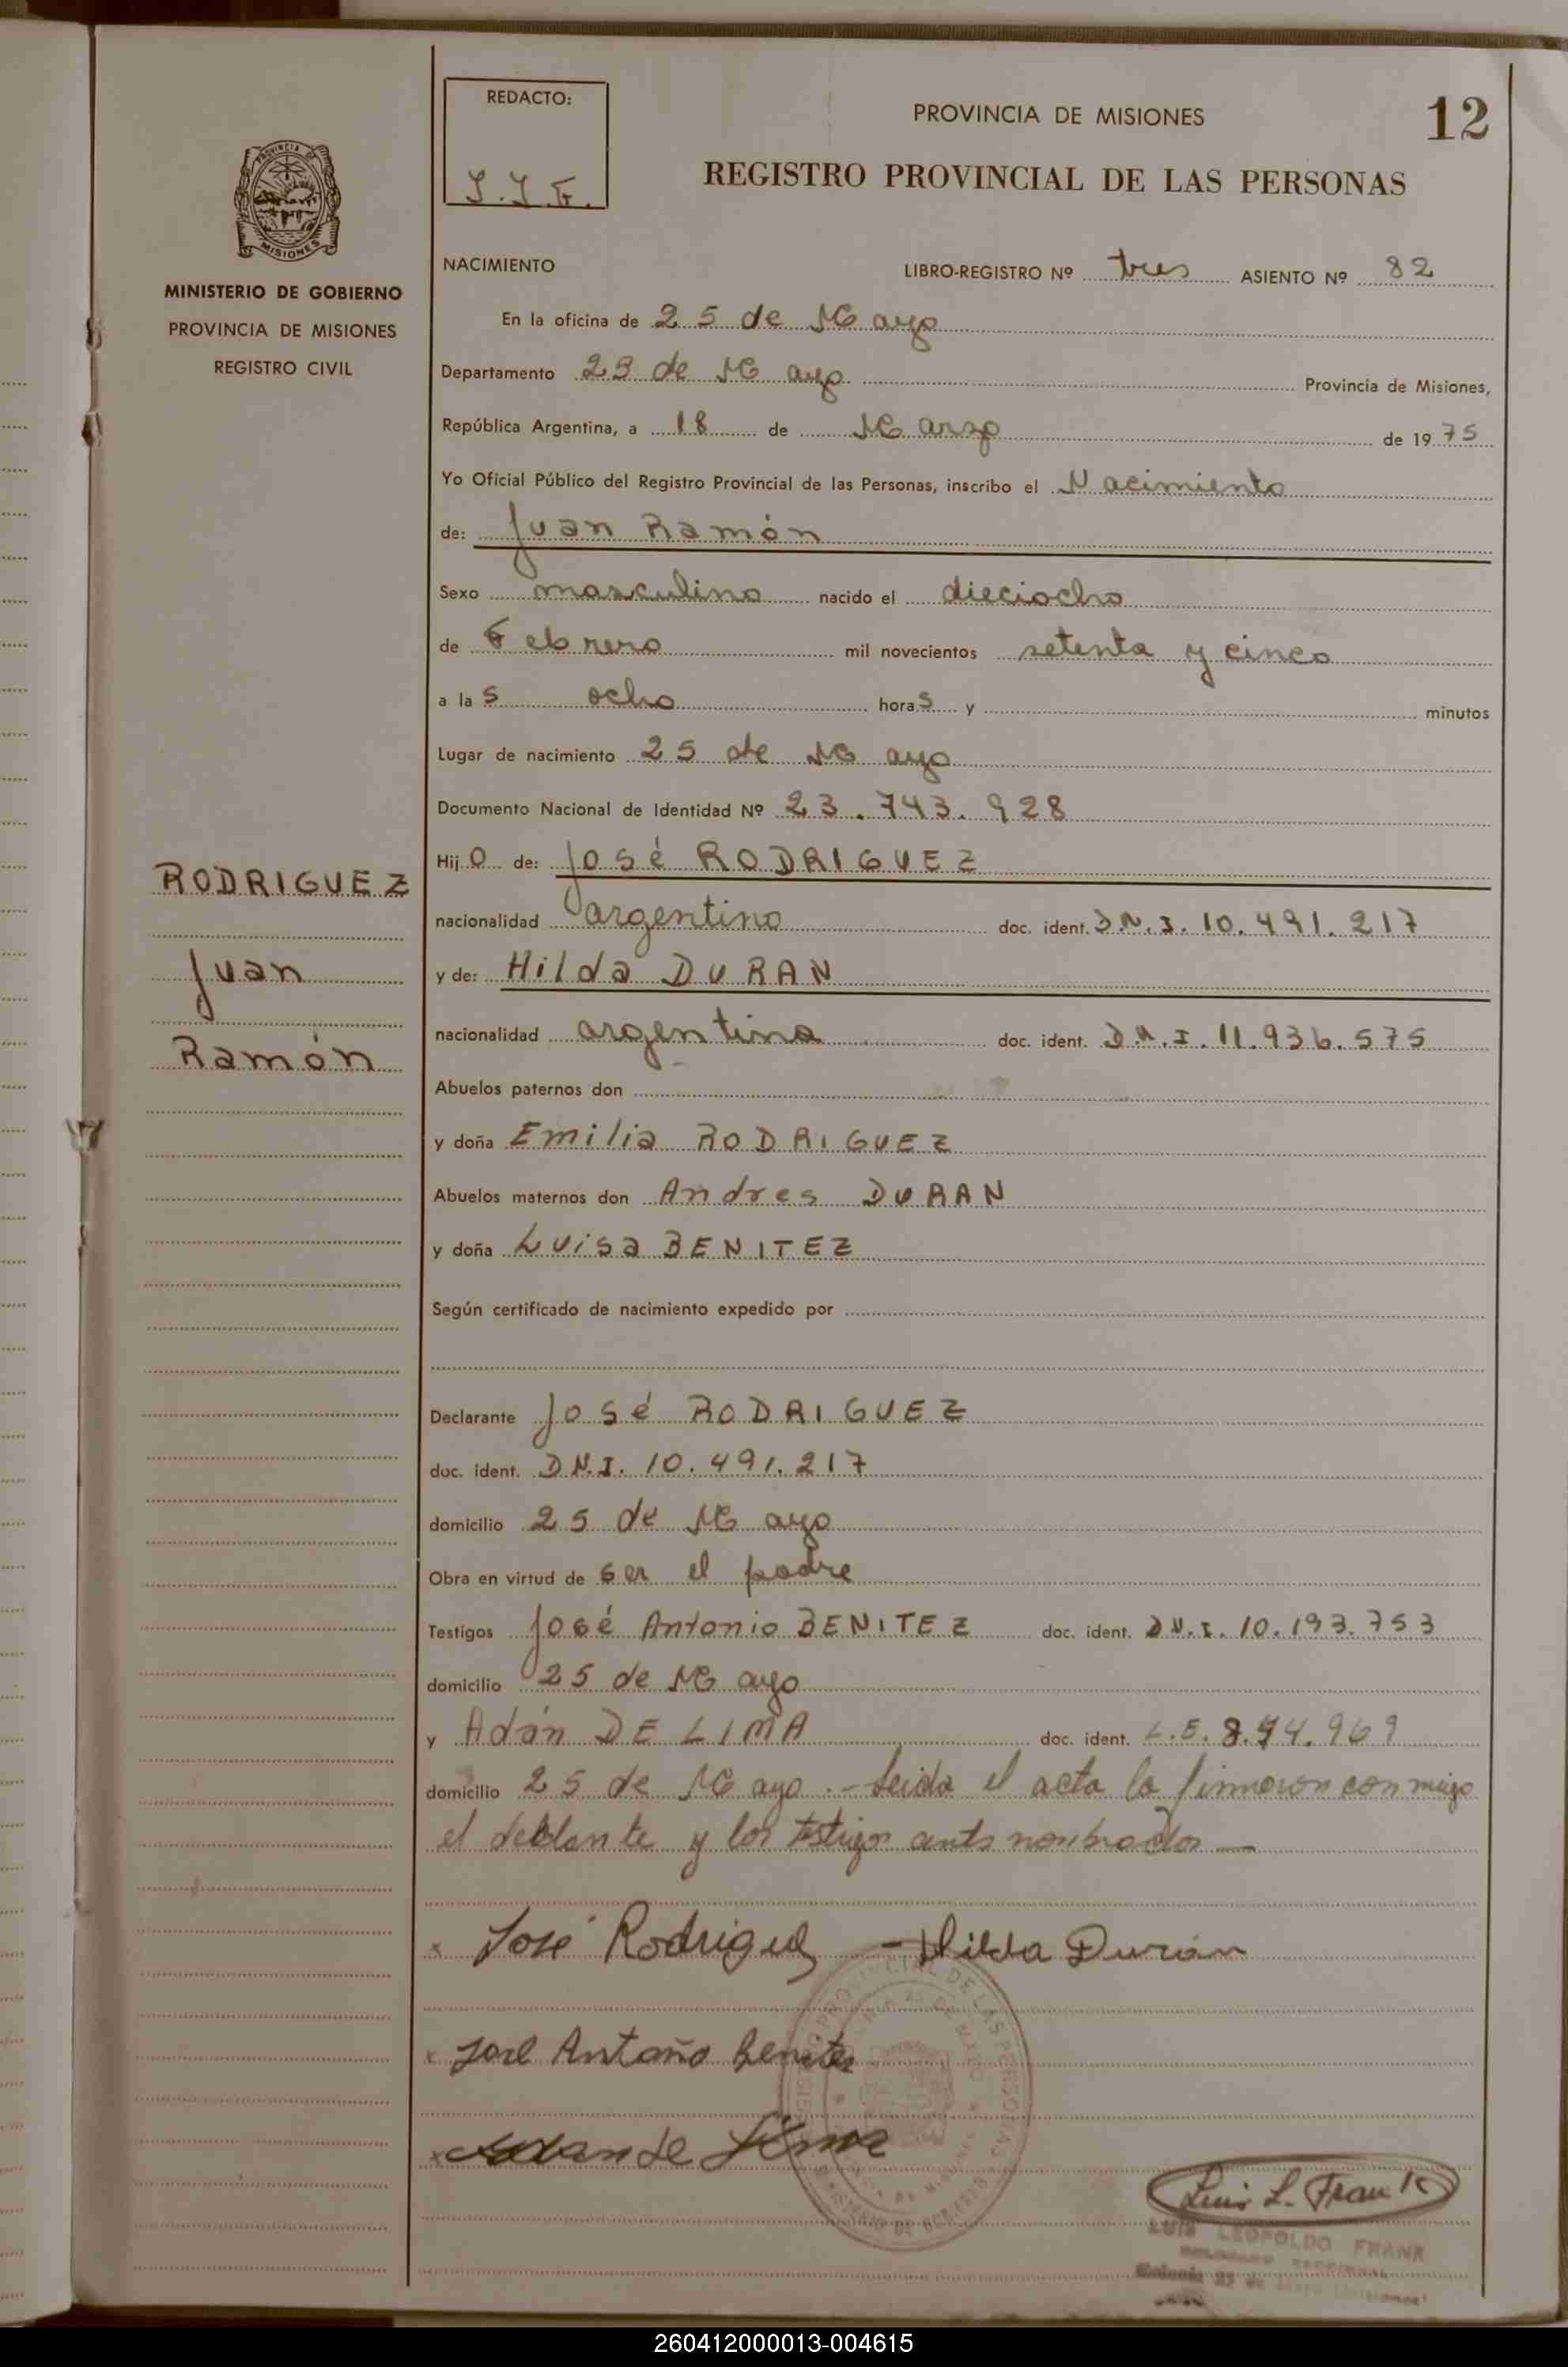 REDACTO:
PROVINCIA DE MISIONES
12
REGISTRO PROVINCIAL DE LAS PERSONAS
PROVINCIA DE
MISIONES
MINISTERIO DE GOBIERNO
PROVINCIA DE MISIONES
REGISTRO CIVIL
NACIMIENTO
LIBRO-REGISTRO Nº tres ASIENTO Nº 82
En la oficina de 25 de Mayo
Departamento 25 de Mayo Provincia de Misiones,
República Argentina, a 18 de Marzo de 1975
Yo Oficial Público del Registro Provincial de las Personas, inscribo el Nacimiento
de: Juan Ramón
Sexo masculino nacido el dieciocho
de Febrero mil novecientos setenta y cinco
a las ocho horas y minutos
Lugar de nacimiento 25 de Mayo
Documento Nacional de Identidad Nº 23.743.928
RODRIGUEZ
Juan
Ramón
Hijo de: José RODRIGUEZ
nacionalidad argentino doc. ident. D.N.I. 10.491.217
y de: Hilda DURAN
nacionalidad argentina doc. ident. D.N.I. 11.936.575
Abuelos paternos don
y doña Emilia RODRIGUEZ
Abuelos maternos don Andres DURAN
y doña Luisa BENITEZ
Según certificado de nacimiento expedido por
Declarante José RODRIGUEZ
doc. ident. D.N.I. 10.491.217
domicilio 25 de Mayo
Obra en virtud de ser el padre
Testigos José Antonio BENITEZ doc. ident. D.N.I. 10.193.753
domicilio 25 de Mayo
y Adán DE LIMA doc. ident. L.E.
domicilio 25 de Mayo.- Leida el acta la firmaron con migo
el y los testigos nombrados
José Rodriguez - Hilda Durán
José Antoño Benites
Adan de Lima
Luis L. Frank
LUIS LEOPOLDO FRANK
260412000013-004615